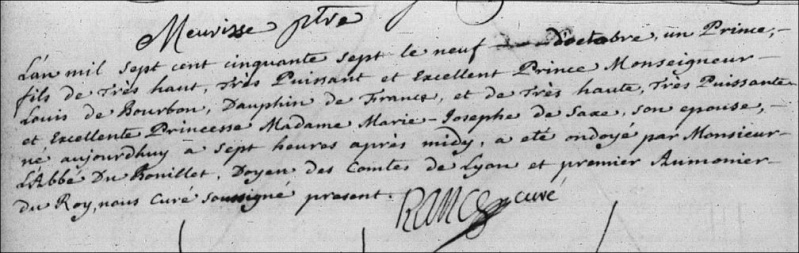 Meurisse ptre
L'an mil sept cent cinquante sept le neuf d'octobre, un Prince,-
fils de Très haut, Très Puissant et Excellent Prince Monseigneur-
Louis de Bourbon, Dauphin de France, et de Très haute, Très Puissante
et Excellente Princesse Madame Marie-Josephe de Saxe, son epouse,-
né aujourdhuy à sept heures après midy, a eté ondoyé par Monsieur
L'Abbé Du Bouillet, Doyen des Comtes de Lyon et premier Aumonier-
du Roy, nous Curé soussigné present.
Rance curé